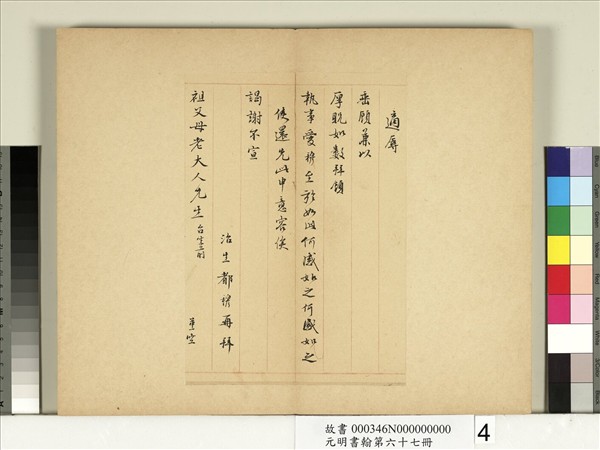 適辱
垂顧兼以
厚貺如數拜領
執事愛穆至於如此何感如之何感如之
使還先此申意容俟
謁謝不宣
治生都穆再拜
祖父母老大人先生 台座前
故書 000346N000000000
元明書翰第六十七冊
4